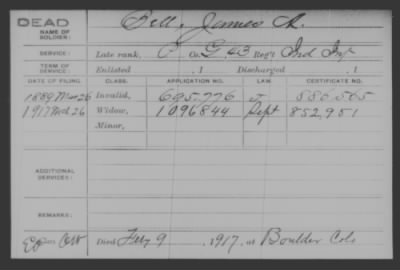 DEAD
NAME OF SOLDIER: Bell, James A.
SERVICE: Late rank, P Co. G, 43 Reg't Ind Inf
TERM OF SERVICE Enlisted , 1 Discharged , 1
DATE OF FILING. CLASS. APPLICATION NO. LAW. CERTIFICATE NO.
1889 Mar 26 Invalid, 695.776 886.565
1917 Mch 26 Widow, 1096844 Sept 852,951
Minor,
ADDITIONAL SERVICES:
REMARKS:
Died Feby 9 , 1917, at Boulder Colo